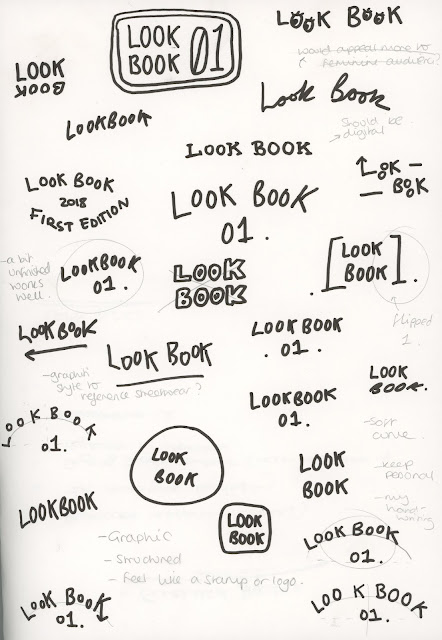 LOOK
BOOK
01
LOOK BOOK
would appeal more to
feminine audience?
LOOK
BOOK
LOOKBOOK
Look Book
Should be
digital
LOOK BOOK
LOOK BOOK
2018
FIRST EDITION
LOOK BOOK
01.
LOOK –
— BOOK
- a bit
unfinished
works
well.
LOOKBOOK
01.
LOOK
BOOK
[LOOK
BOOK].
flipped
1.
LOOKBOOK
LOOK BOOK
- graphic
style to
reference streetwear?
LOOK BOOK
. 01.
LOOKBOOK
01.
LOOK
BOOK.
- soft
curve.
LOOK BOOK
01.
LOOK
BOOK
LOOK
BOOK
- keep
personal
- my
hand-
writing
LOOKBOOK
LOOK
BOOK
- Graphic
- Structured
- Feel like a stamp or logo.
LOOK BOOK
01.
LOOK BOOK
01.
LOOK BOOK
01.